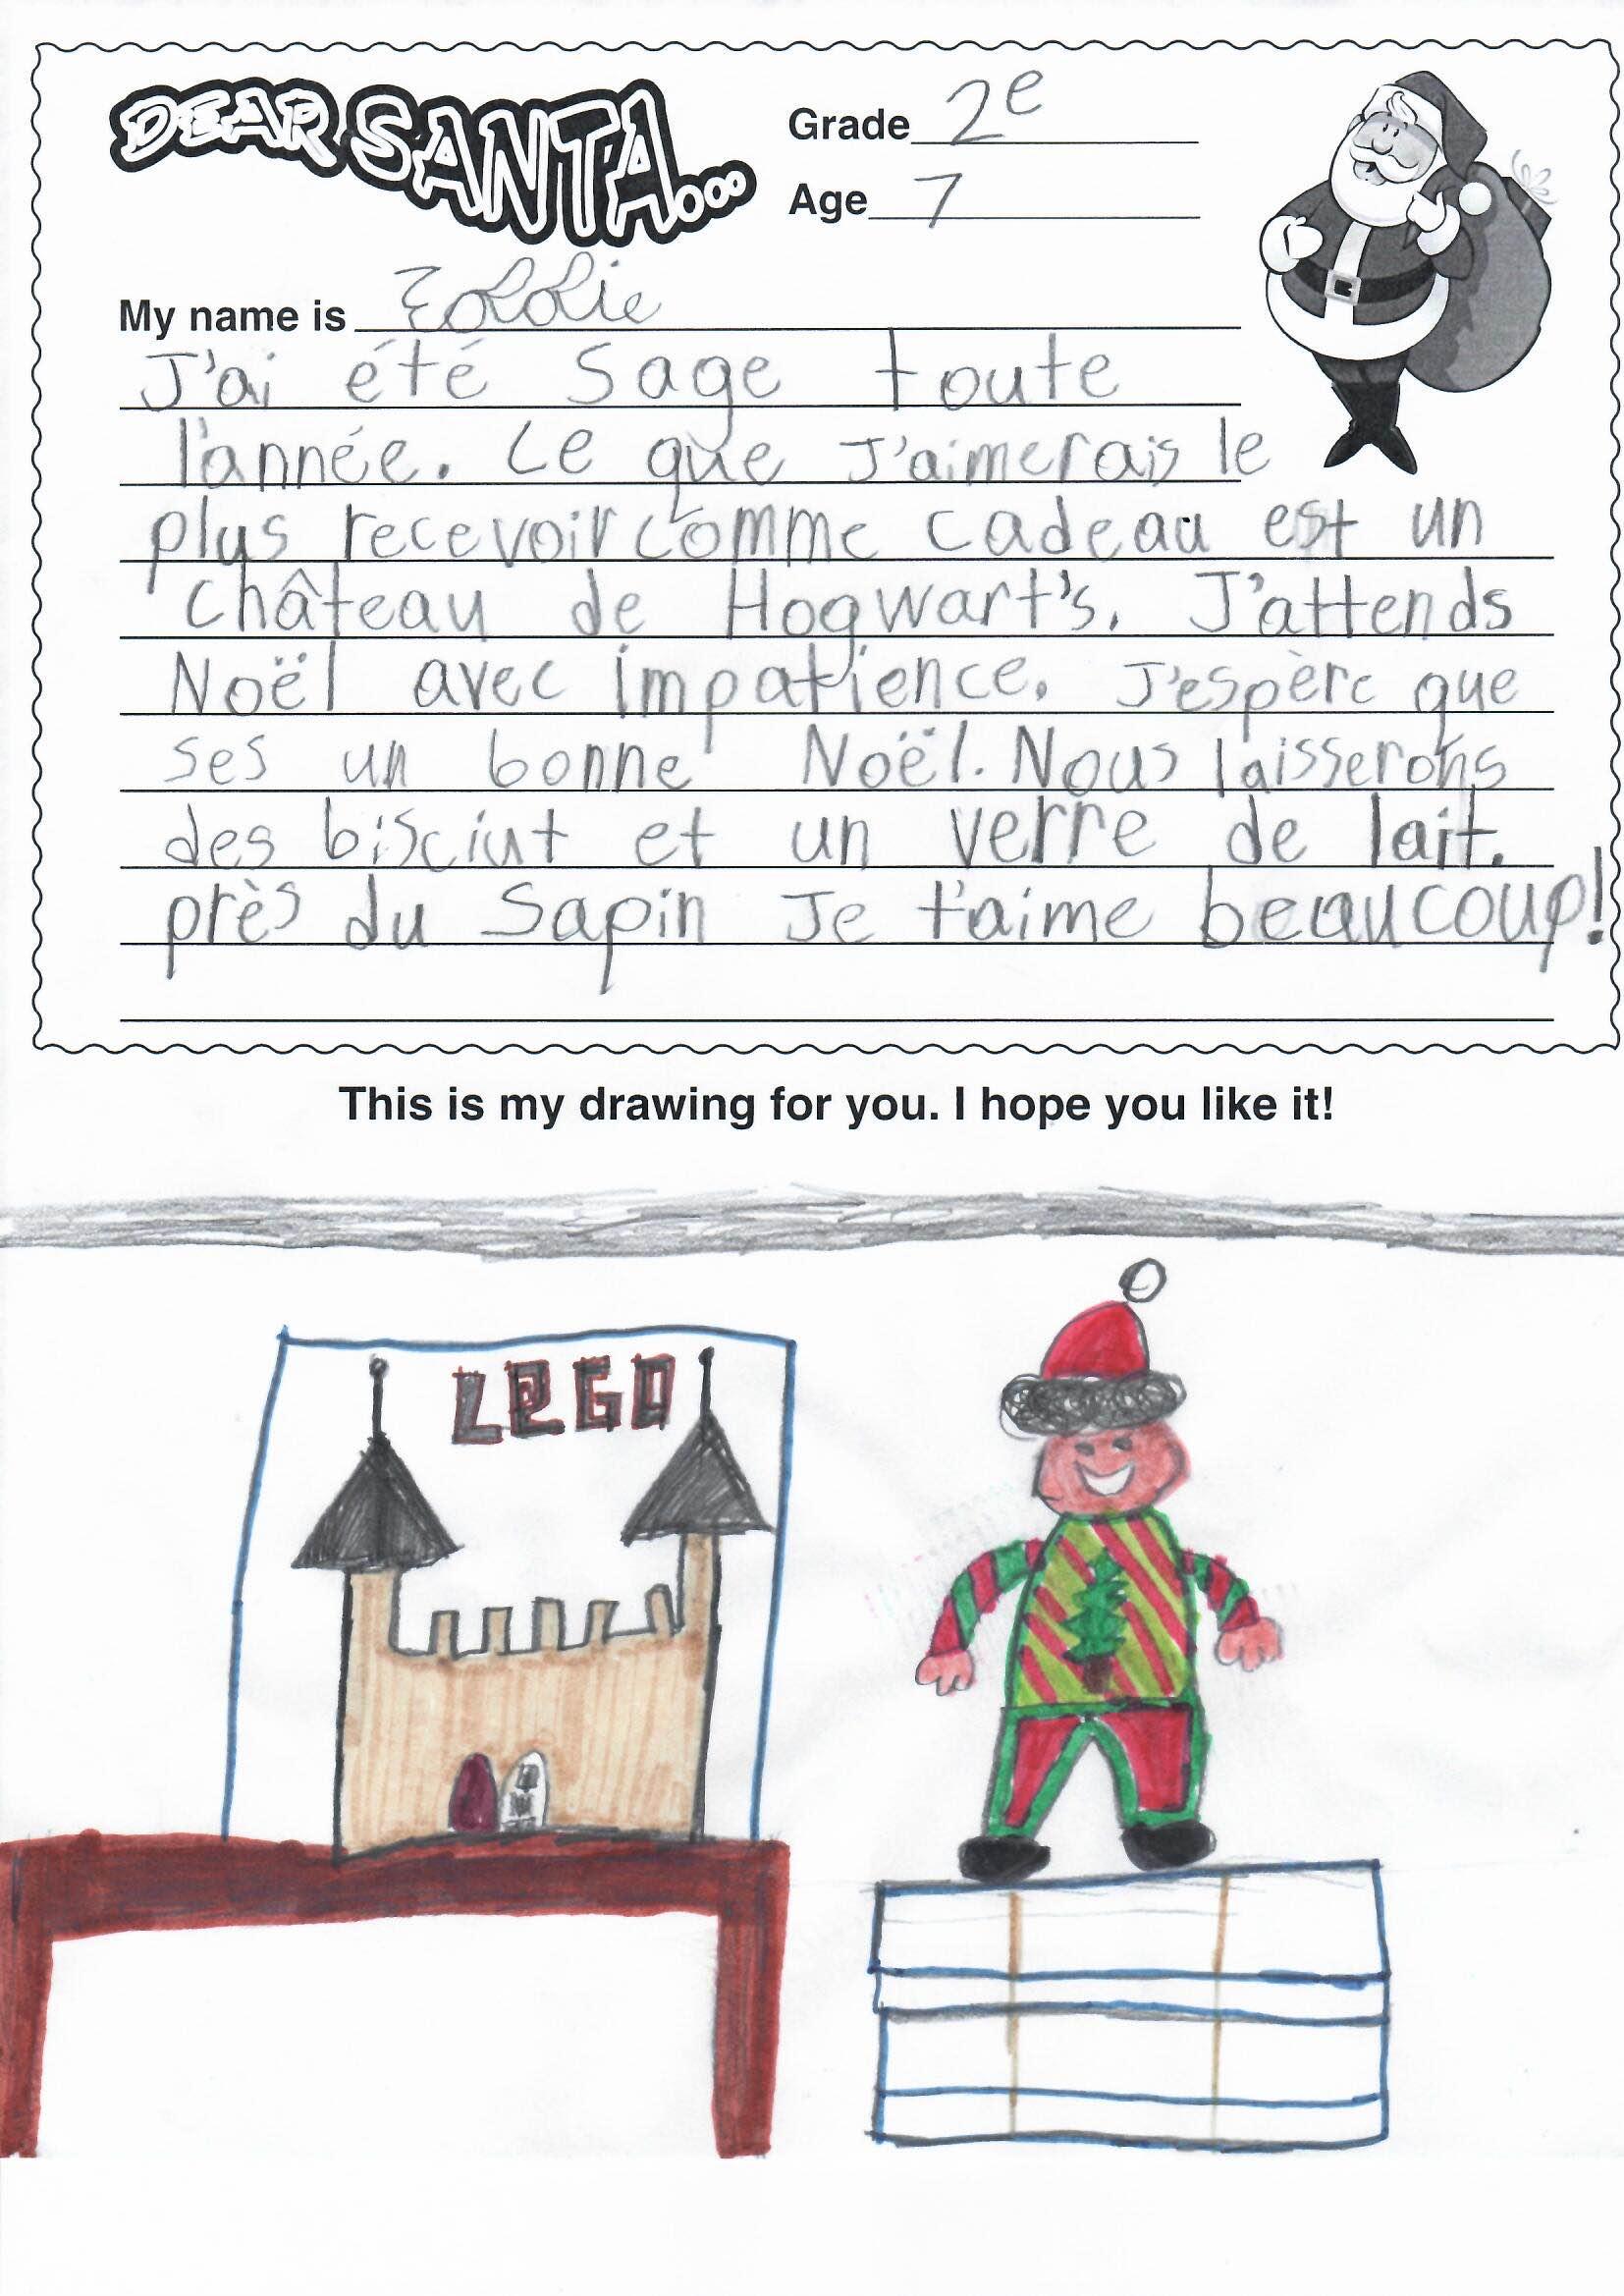 DEAR SANTA...
Grade 2e
Age 7
My name is Eddie
J'ai été sage toute
l'année. Le que J'aimerais le
plus recevoir comme cadeau est un
château de Hogwart's. J'attends
Noël avec impatience. J'espère que
ses un bonne Noël. Nous laisserons
des bisciut et un verre de lait.
près du Sapin Je t'aime beaucoup!
This is my drawing for you. I hope you like it!
LEGO